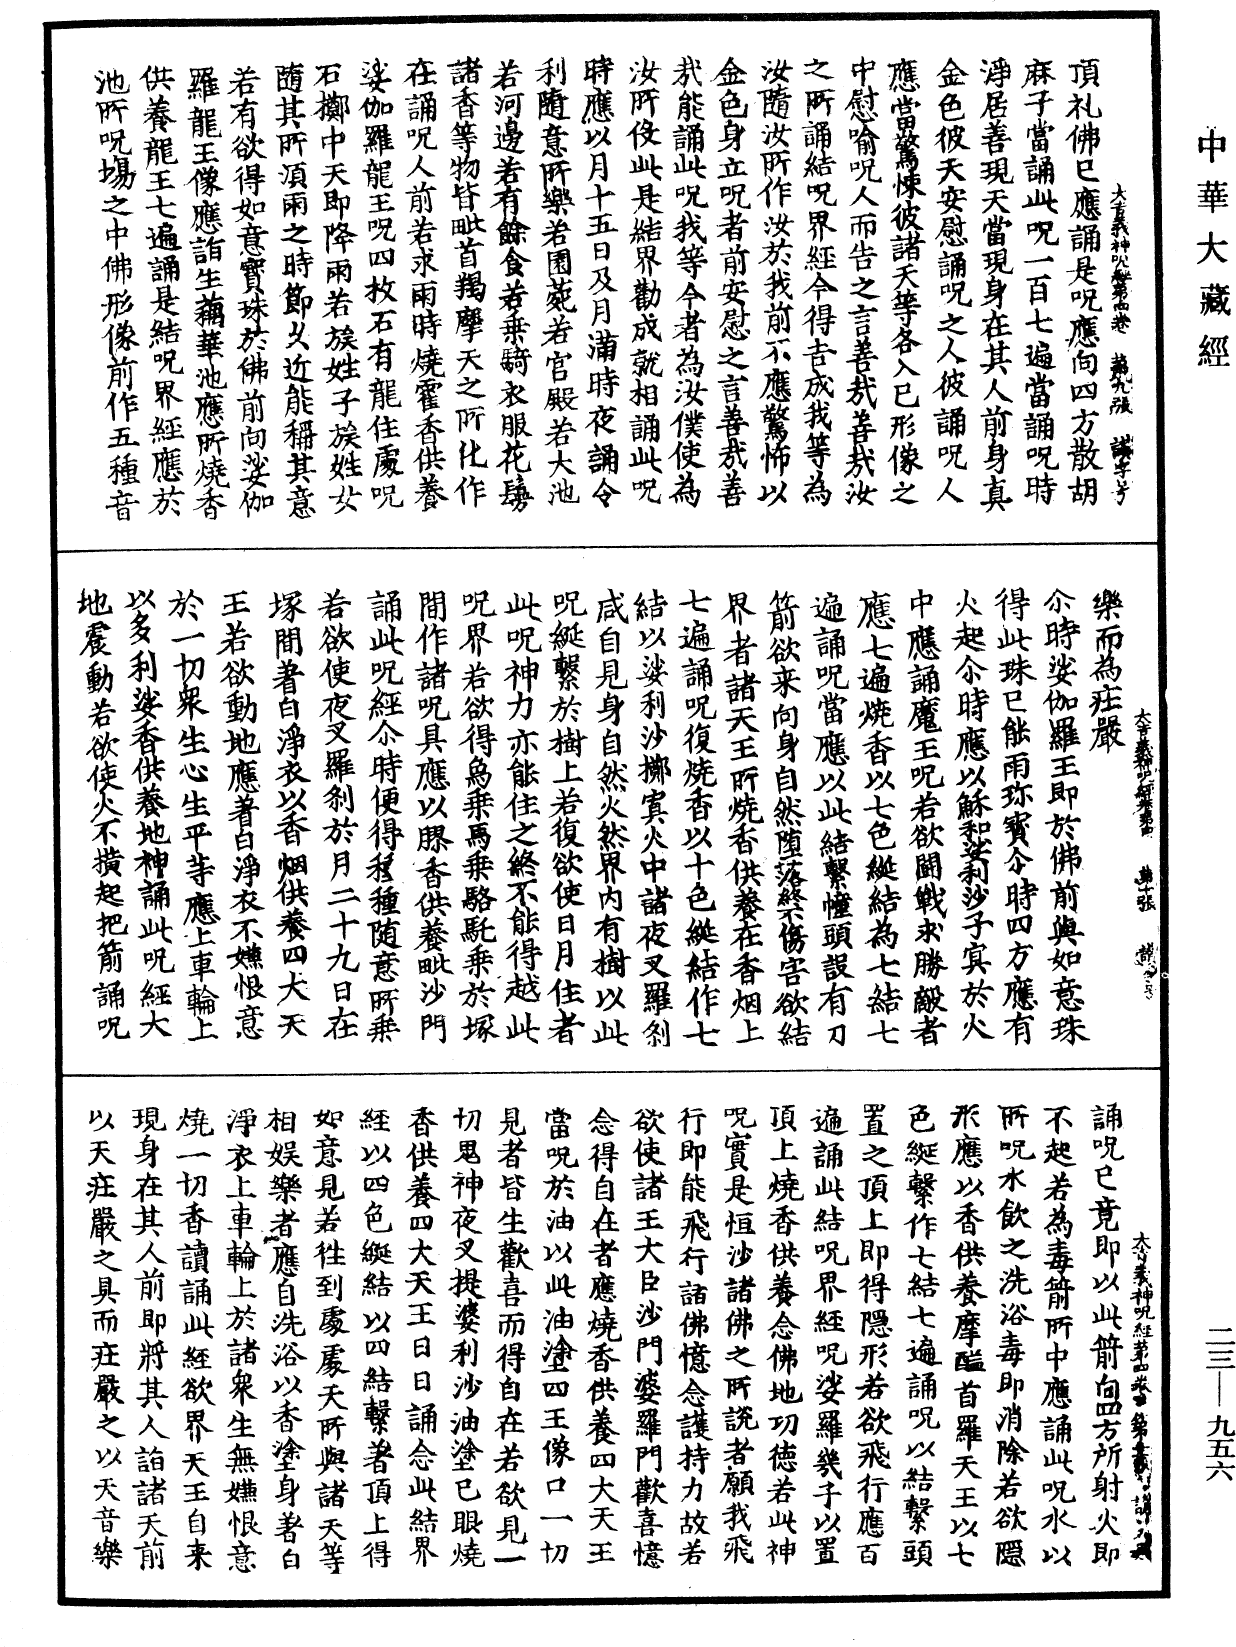 中華大藏經
大吉義神呪經第四卷　第九張　諸字号
頂礼佛已應誦是呪應向四方散胡
麻子當誦此呪一百七遍當誦呪時
淨居善現天當現身在其人前身真
金色彼天安慰誦呪之人彼誦呪人
應當驚悚彼諸天等各入已形像之
中慰喻呪人而告之言善㢤善㢤汝
之所誦結呪界經今得吉成我等為
汝隨汝所作汝於我前不應驚怖以
金色身立呪者前安慰之言善㢤善
㢤能誦此呪我等今者為汝僕使為
汝所伇此是結界勸成就相誦此呪
時應以月十五日及月滿時夜誦令
利隨意所樂若園菀若宫殿若大池
若河邊若有餘食若乗騎衣服花鬘
諸香等物皆毗首羯摩天之所化作
在誦呪人前若求雨時燒霍香供養
娑伽羅龍王呪四枚石有龍住處呪
石擲中天即降雨若族姓子族姓女
隨其所湏雨之時節久近能稱其意
若有欲得如意寳珠於佛前向娑伽
羅龍王像應詣生蓮華池應所燒香
供養龍王七遍誦是結呪界經應於
池所呪場之中佛形像前作五種音
大吉義神呪經卷第四　第十張
樂而為㽵嚴
尒時娑伽羅王即於佛前與如意珠
得此珠已能雨珎寳尒時四方應有
火起尒時應以酥和娑利沙子寘於火
中應誦魔王呪若欲鬪戰求勝敵者
應七遍燒香以七色綖結為七結七
遍誦呪當應以此結繫幢頭設有刀
箭欲来向身自然堕落終不傷害欲結
界者諸天王所燒香供養在香烟上
七遍誦呪復燒香以十色綖結作七
結以娑利沙擲寘火中諸夜叉羅刹
咸自見身自然火然界内有樹以此
呪綖繫於樹上若復欲使日月住者
此呪神力亦能住之終不能得越此
呪界若欲得象乗馬乗駱馳乗於塚
間作諸呪具應以膠香供養毗沙門
誦此呪經尒時便得種種随意所乗
若欲使夜叉羅刹於月二十九日在
塚間著白淨衣以香烟供養四大天
王若欲動地應著白淨衣不嫌恨意
於一切衆生心生平等應上車輪上
以多利娑香供養地神誦此呪經大
地震動若欲使火不撗起把箭誦呪
大吉義神呪經第四卷
誦呪已竟即以此箭向四方所射火即
不起若為毒箭所中應誦此呪水以
所呪水飲之洗浴毒即消除若欲隱
形應以香供養摩醯首羅天王以七
色綖繫作七結七遍誦呪以結繫頭
置之頂上即得隱形若欲飛行應百
遍誦此結呪界經呪娑羅幾子以置
頂上燒香供養念佛地功德若此神
呪實是恒沙諸佛之所說者願我飛
行即能飛行諸佛憶念護持力故若
欲使諸王大臣沙門婆羅門歡喜憶
念得自在者應燒香供養四大天王
當呪於油以此油塗四王像口一切
見者皆生歡喜而得自在若欲見一
切鬼神夜叉提婆利沙油塗已眼燒
香供養四大天王日日誦念此結界
經以四色綖結以四結繫著頂上得
如意見若往到處處天所與諸天等
相娱樂者應自洗浴以香塗身著白
淨衣上車輪上於諸衆生無嫌恨意
燒一切香讀誦此經欲界天王自来
現身在其人前即將其人詣諸天前
以天㽵嚴之具而㽵嚴之以天音樂
二三—九五六